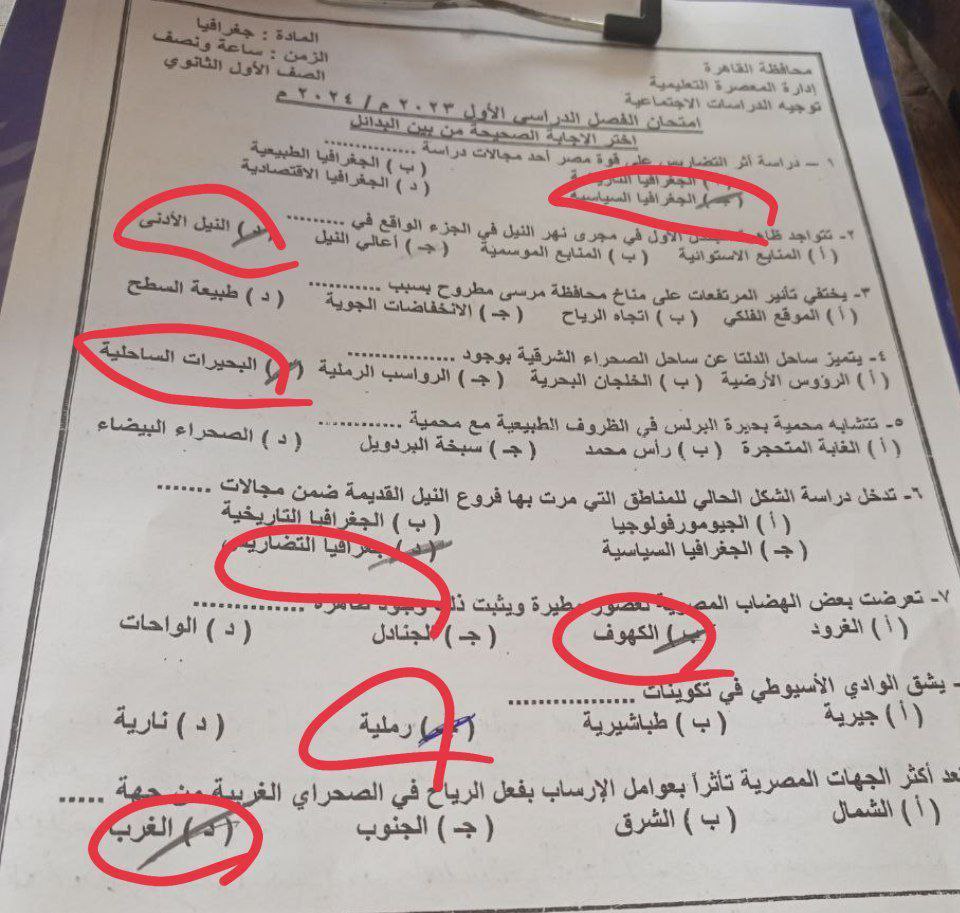 محافظة القاهرة
إدارة المعصرة التعليمية
توجيه الدراسات الاجتماعية
المادة : جغرافيا
الزمن : ساعة ونصف
الصف الأول الثانوي
امتحان الفصل الدراسي الأول ٢٠٢٣ م / ٢٠٢٤ م
اختر الاجابة الصحيحة من بين البدائل
١ – دراسة أثر التضاريس على قوة مصر أحد مجالات دراسة ..............
( أ ) الجغرافيا التاريخية ( ب ) الجغرافيا الطبيعية
( جـ ) الجغرافيا السياسية ( د ) الجغرافيا الاقتصادية
٢- تتواجد الأول في مجرى نهر النيل في الجزء الواقع في .........
( أ ) المنابع الاستوائية ( ب ) المنابع الموسمية ( جـ ) أعالي النيل ( د ) النيل الأدنى
٣- يختفي تأثير المرتفعات على مناخ محافظة مرسى مطروح بسبب ...........
( أ ) الموقع الفلكي ( ب ) اتجاه الرياح ( جـ ) الانخفاضات الجوية ( د ) طبيعة السطح
٤- يتميز ساحل الدلتا عن ساحل الصحراء الشرقية بوجود ................
( أ ) الرؤوس الأرضية ( ب ) الخلجان البحرية ( جـ ) الرواسب الرملية ( د ) البحيرات الساحلية
٥- تتشابه محمية بحيرة البرلس في الظروف الطبيعية مع محمية ............
( أ ) الغابة المتحجرة ( ب ) رأس محمد ( جـ ) سبخة البردويل ( د ) الصحراء البيضاء
٦- تدخل دراسة الشكل الحالي للمناطق التي مرت بها فروع النيل القديمة ضمن مجالات .......
( أ ) الجيومورفولوجيا ( ب ) الجغرافيا التاريخية
( جـ ) الجغرافيا السياسية ( د ) جغرافيا التضاريس
٧- تعرضت بعض الهضاب المصرية لعصور مطيرة ويثبت ذلك وجود ظاهرة ..............
( أ ) الغرود ( ب ) الكهوف ( جـ ) الجنادل ( د ) الواحات
- يشق الوادي الأسيوطي في تكوينات ................
( أ ) جيرية ( ب ) طباشيرية ( جـ ) رملية ( د ) نارية
تعد أكثر الجهات المصرية تأثراً بعوامل الإرساب بفعل الرياح في الصحراي الغربية من جهة .....
( أ ) الشمال ( ب ) الشرق ( جـ ) الجنوب ( د ) الغرب